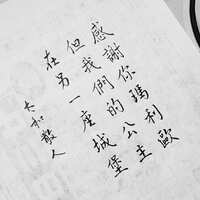 感謝你瑪利歐
但我們的公主
在另一座城堡
和人